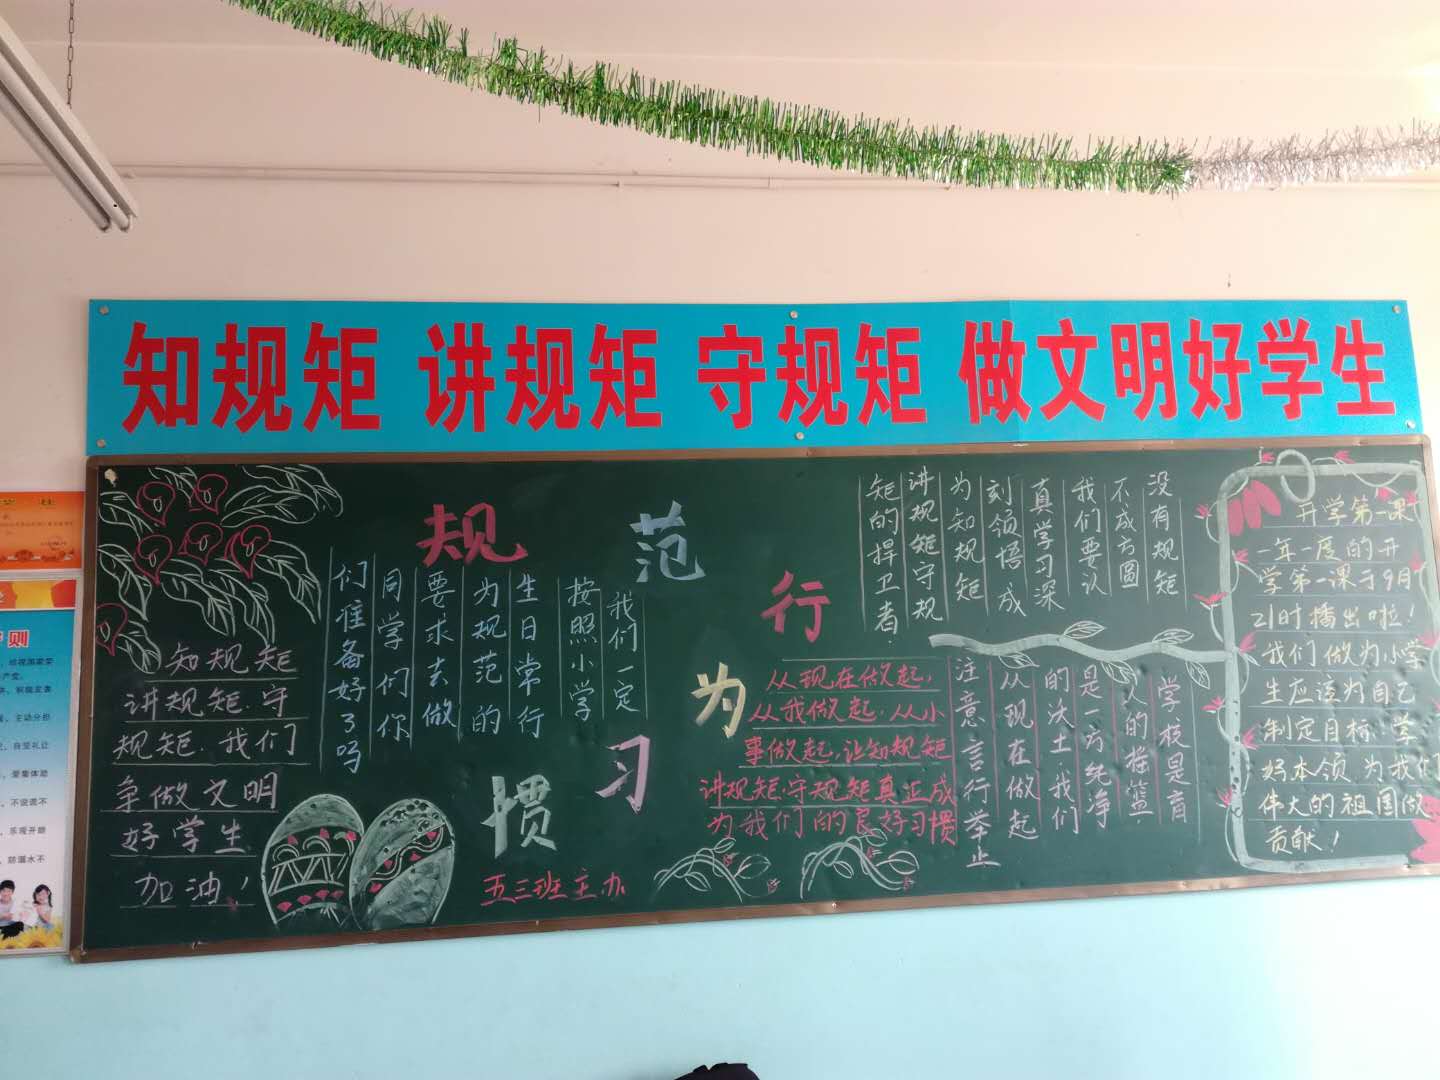 知规矩 讲规矩 守规矩 做文明好学生
规范行为习惯
知规矩
讲规矩.守
规矩.我们
争做文明
好学生
加油！
我们一定
按照小学
生日常行
为规范的
要求去做
同学们你
们准备好了吗
五三班主办
没有规矩
不成方圆
我们要认
真学习深
刻领悟成
为知规矩
讲规矩守规
矩的捍卫者
从现在做起,
从我做起.从小
事做起,让知规矩
讲规矩.守规矩真正成
为我们的良好习惯
学校是育
人的摇篮
是一方纯净
的沃土.我们
从现在做起
注意言行举止
开学第一课
一年一度的开
学第一课于9月
21时播出啦！
我们做为小学
生应该为自己
制定目标.学
好本领.为我们
伟大的祖国做
贡献！
则
主动分担
自觉礼让
爱集体助
不说谎不
乐观开朗
防溺水不